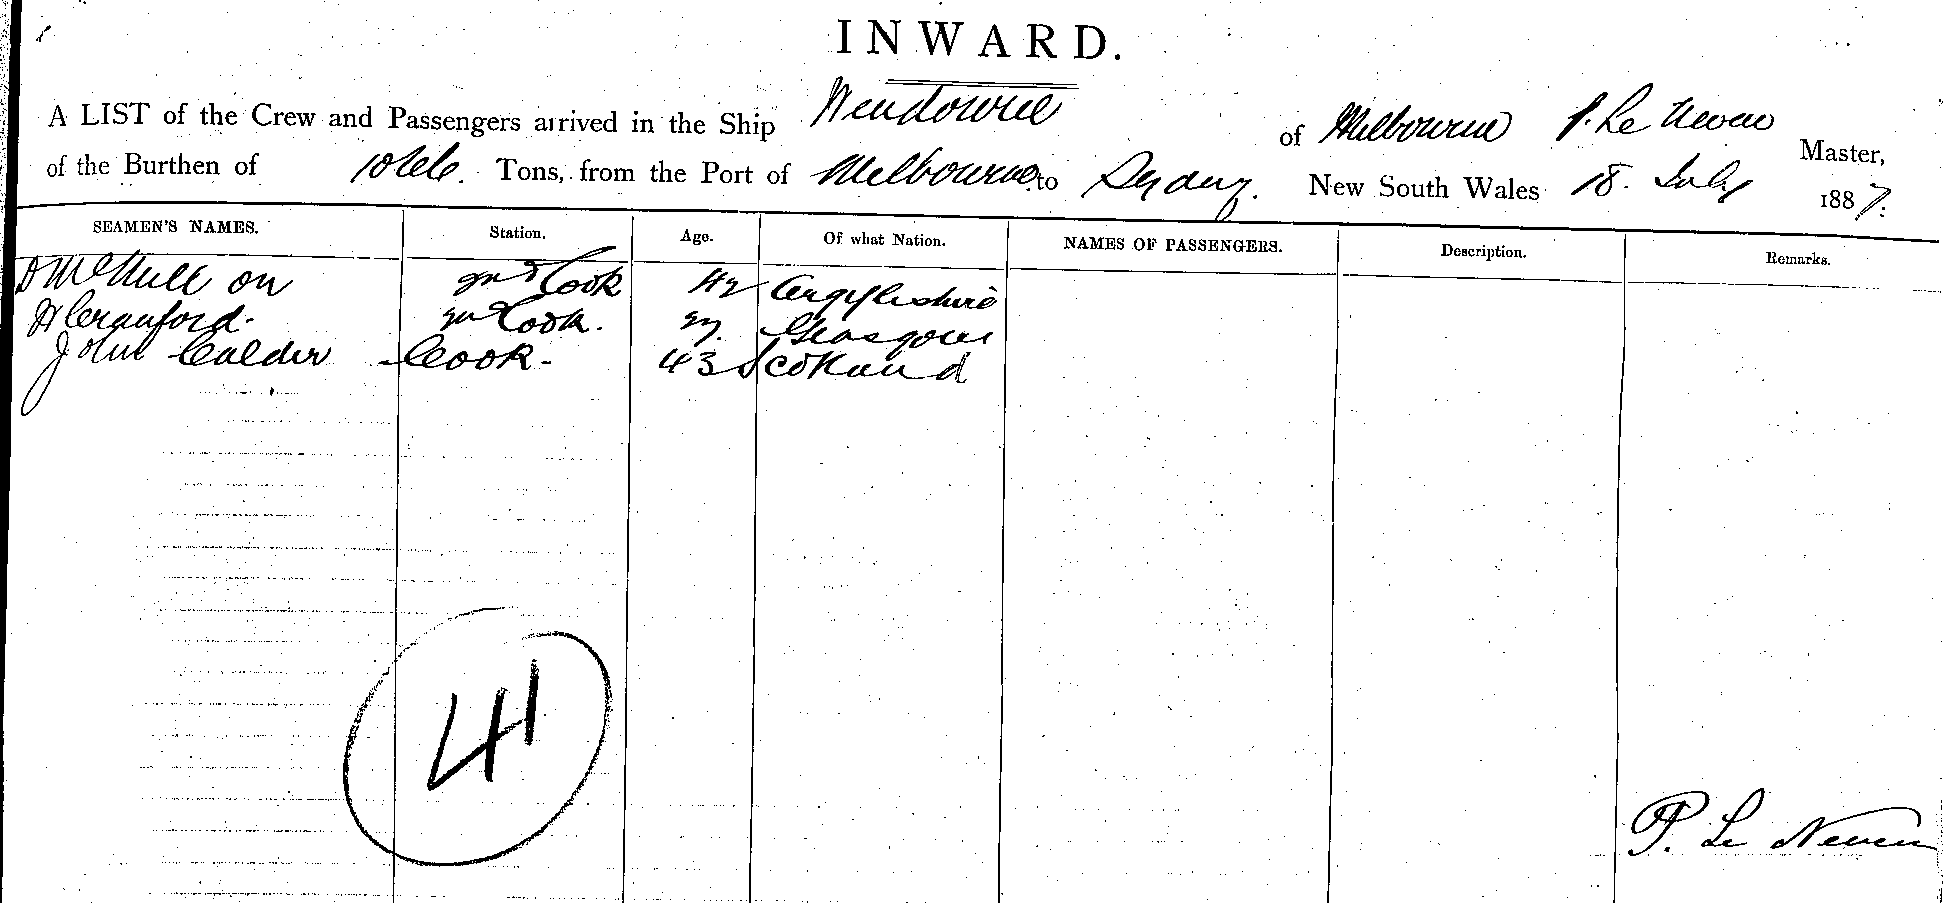 INWARD.
A LIST of the Crew and Passengers arrived in the Ship Wendouree of Melbourne P. Le Neveu Master,
of the Burthen of Tons, from the Port of Melbourne to Sydney. New South Wales 18. July 1887.
SEAMEN'S NAMES. Station. Age. Of what Nation. NAMES OF PASSENGERS. Description. Remarks.
D McMillon 2nd Cook 42 Argyleshire
W Crauford. 2nd Cook. 27. Glasgow
John Calder Cook. 43 Scotland
41
P. Le Neveu